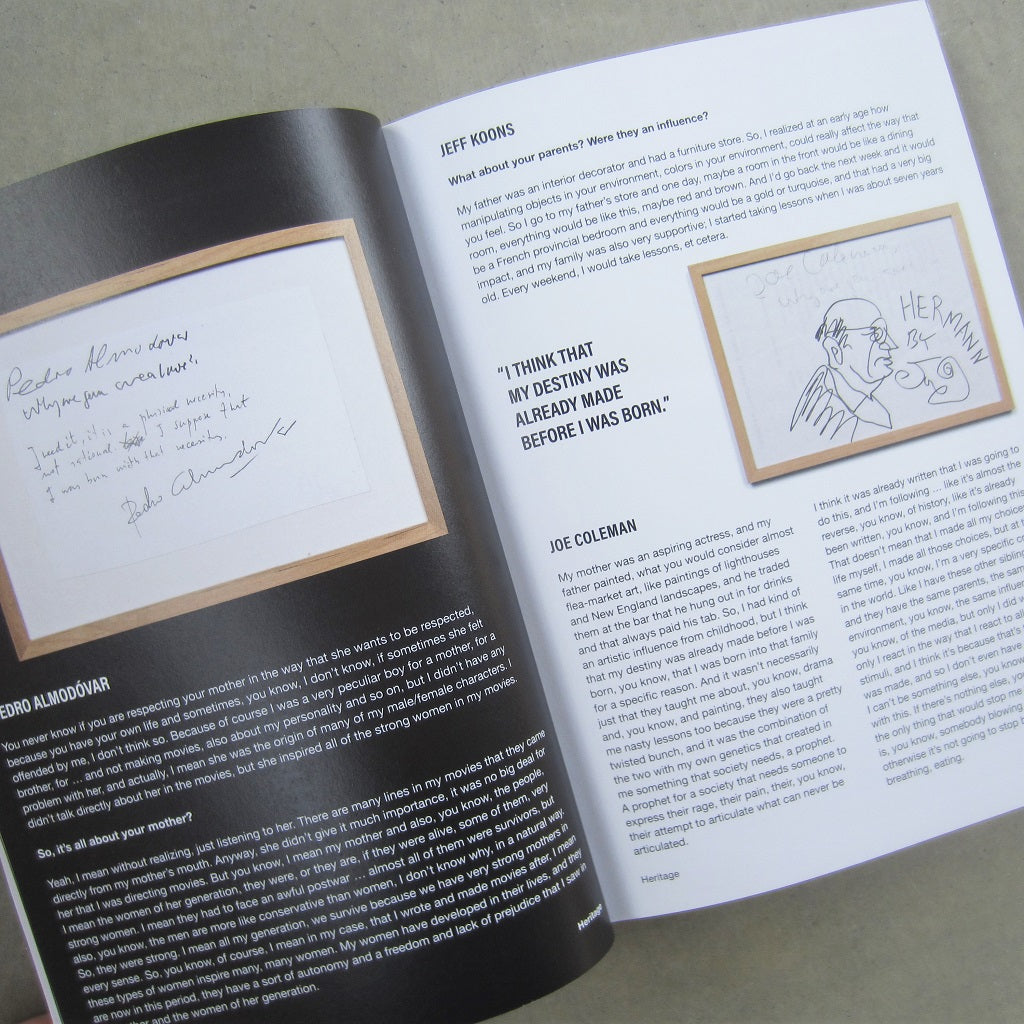 Pedro Almodovar
Why are you creative?
I need it, it is a physical necesity,
not rational. I suppose that
I was born with that necesity.
Pedro Almodovar
EDRO ALMODÓVAR
You never know if you are respecting your mother in the way that she wants to be respected,
because you have your own life and sometimes, you know, I don't know, if sometimes she felt
offended by me, I don't think so. Because of course I was a very peculiar boy for a mother, for a
brother, for ... and not making movies, also about my personality and so on, but I didn't have any
problem with her, and actually, I mean she was the origin of many of my male/female characters. I
didn't talk directly about her in the movies, but she inspired all of the strong women in my movies.
So, it's all about your mother?
Yeah, I mean without realizing, just listening to her. There are many lines in my movies that they came
directly from my mother's mouth. Anyway, she didn't give it much importance, it was no big deal for
her that I was directing movies. But you know, I mean my mother and also, you know, the people,
I mean the women of her generation, they were, or they are, if they were alive, some of them, very
strong women. I mean they had to face an awful postwar ... almost all of them were survivors, but
also, you know, the men are more like conservative than women, I don't know why, in a natural way.
So, they were strong. I mean all my generation, we survive because we have very strong mothers in
every sense. So, you know, of course, I mean in my case, that I wrote and made movies after, I mean
these types of women inspire many, many women. My women have developed in their lives, and they
are now in this period, they have a sort of autonomy and a freedom and lack of prejudice that I saw in
ther and the women of her generation.
Heritage
JEFF KOONS
What about your parents? Were they an influence?
My father was an interior decorator and had a furniture store. So, I realized at an early age how
manipulating objects in your environment, colors in your environment, could really affect the way that
you feel. So I go to my father's store and one day, maybe a room in the front would be like a dining
room, everything would be like this, maybe red and brown. And I'd go back the next week and it would
be a French provincial bedroom and everything would be a gold or turquoise, and that had a very big
impact, and my family was also very supportive; I started taking lessons when I was about seven years
old. Every weekend, I would take lessons, et cetera.
Joe Coleman,
HERMANN
BY
Joe
"I THINK THAT
MY DESTINY WAS
ALREADY MADE
BEFORE I WAS BORN."
JOE COLEMAN
My mother was an aspiring actress, and my
father painted, what you would consider almost
flea-market art, like paintings of lighthouses
and New England landscapes, and he traded
them at the bar that he hung out in for drinks
and that always paid his tab. So, I had kind of
an artistic influence from childhood, but I think
that my destiny was already made before I was
born, you know, that I was born into that family
for a specific reason. And it wasn't necessarily
just that they taught me about, you know, drama
and, you know, and painting, they also taught
me nasty lessons too because they were a pretty
twisted bunch, and it was the combination of
the two with my own genetics that created in
me something that society needs, a prophet.
A prophet for a society that needs someone to
express their rage, their pain, their, you know,
their attempt to articulate what can never be
articulated.
I think it was already written that I was going to
do this, and I'm following ... like it's almost the
reverse, you know, of history, like it's already
been written, you know, and I'm following this
That doesn't mean that I made all my choice
life myself, I made all those choices, but at
same time, you know, I'm a very specific
in the world. Like I have these other sibling
and they have the same parents, the same
environment, you know, the same influe
you know, of the media, but only I did
only I react in the way that I react to
stimuli, and I think it's because that's
was made, and so I don't even have
I can't be something else, you know
with this. If there's nothing else, yo
the only thing that would stop me
is, you know, somebody blowing
otherwise it's not going to stop
breathing, eating.
Heritage